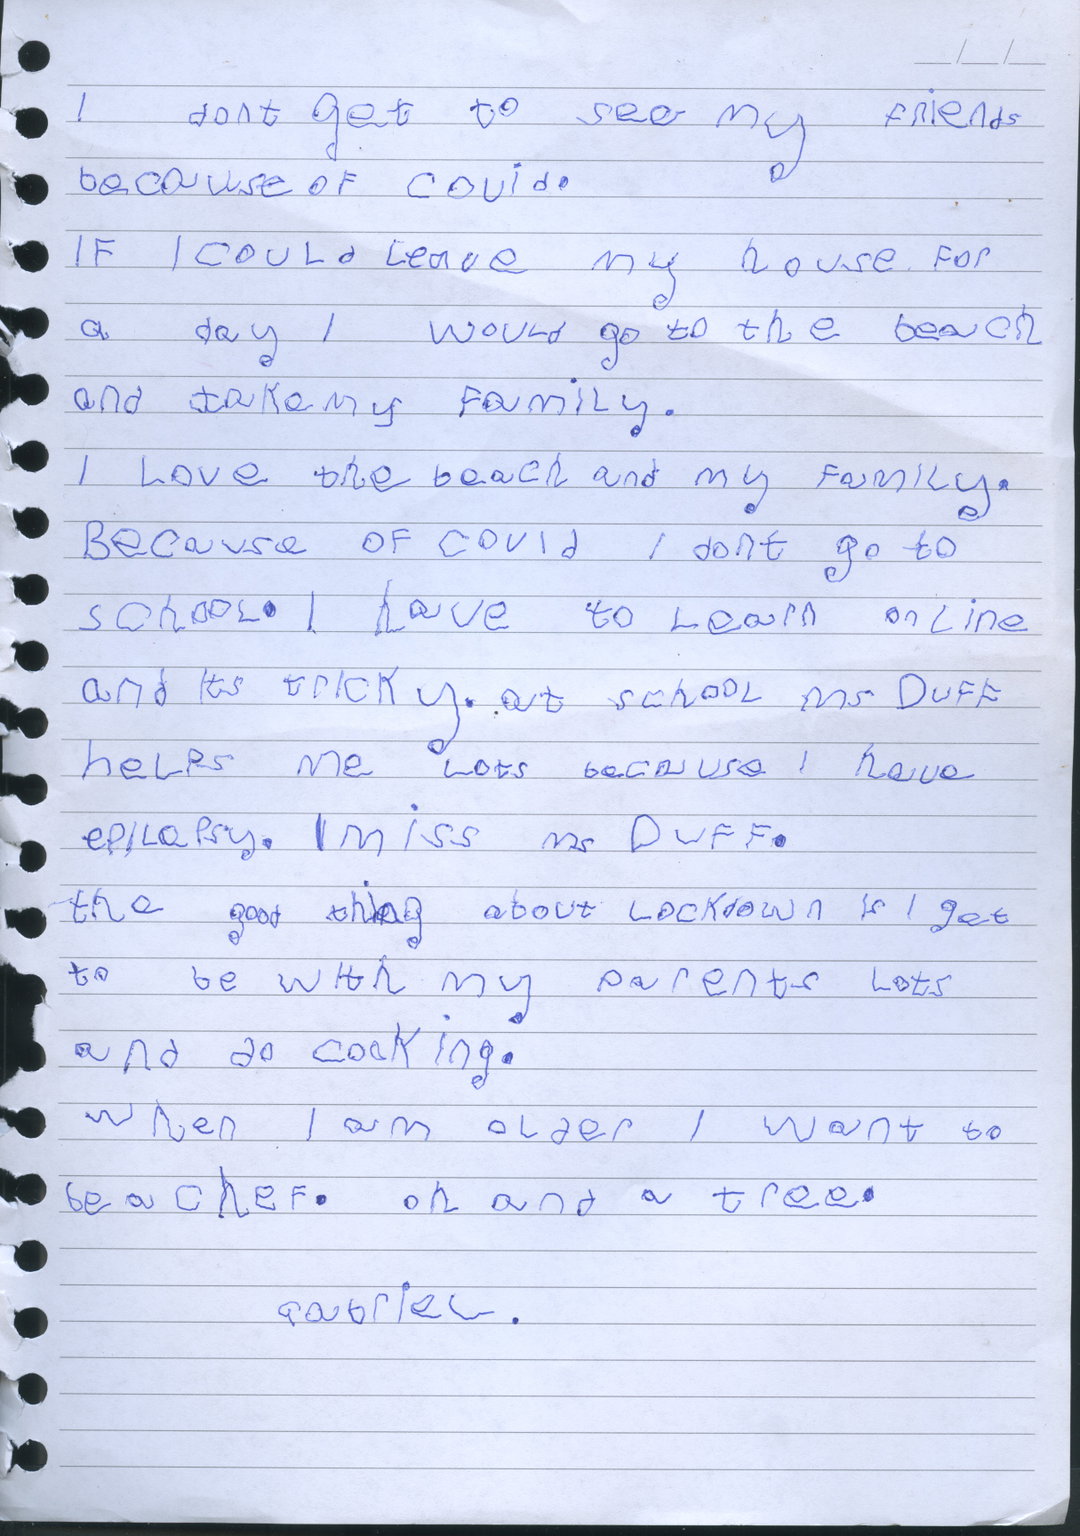 I dont get to see my friends
because of covid.
IF I COULd Leave my house. For
a day I would go to the beach
and take my Family.
I Love the beach and my Family.
Because OF covid I dont go to
school. I have to Learn onLine
and its tricky. at school ms DuFF
heLPs me Lots because I have
ePiLaPsy. I miss ms DuFF.
the good thing about Lockdown is I get
to be with my parents Lots
and do cooking.
when I am oLder I want to
be a cheF. oh and a tree.
gabrieL.